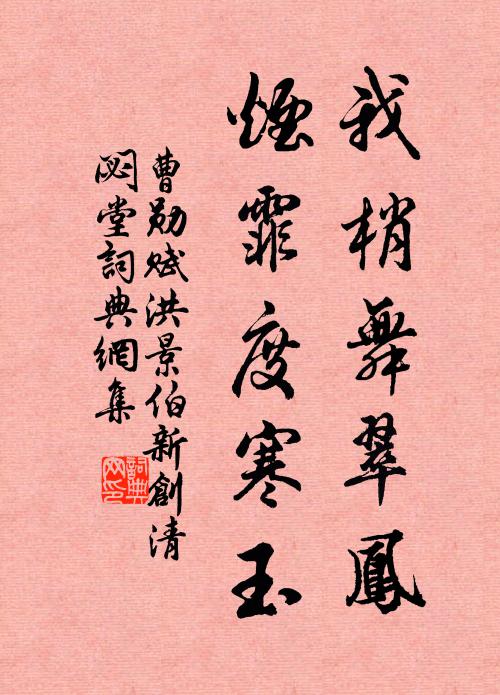 我梢舞翠鳳
煙霏度寒玉
曹勛賦洪景伯新創清
閟堂詞典網集
詞典
网印